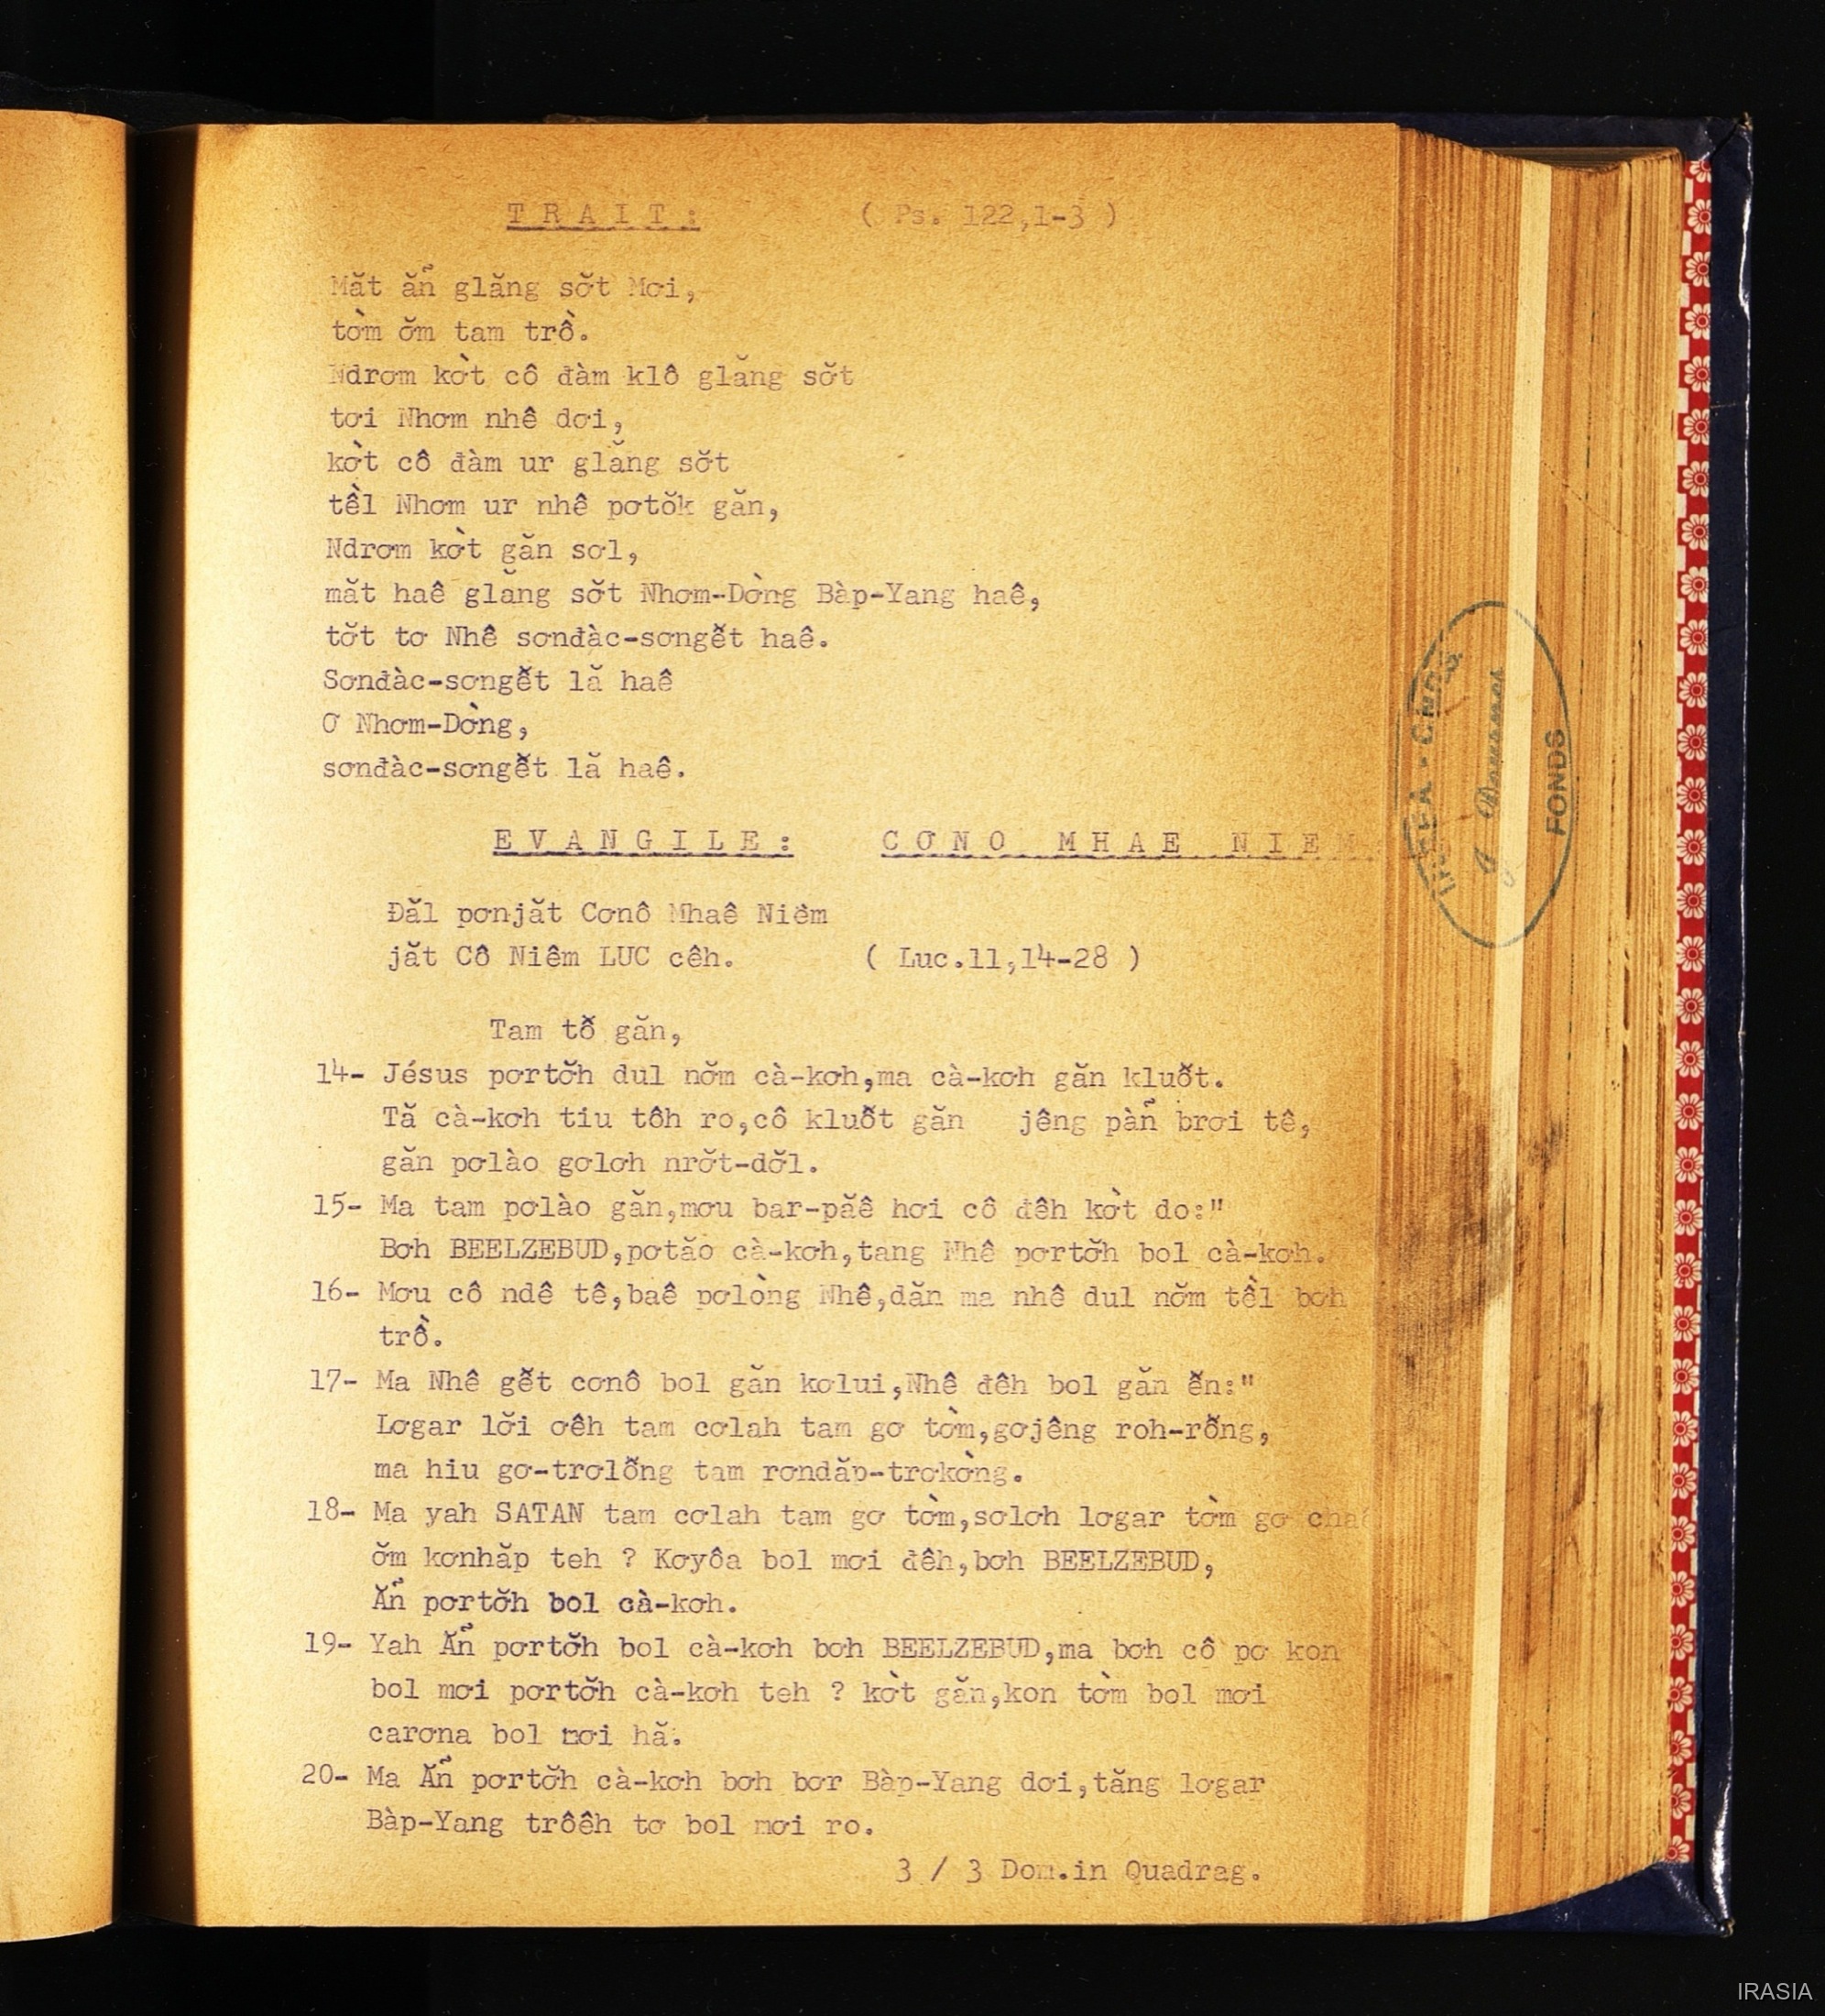 T R A I T : ( Ps. 122,1-3 )
Măt ăn̉ glăng sơ̆t Mơi,
tờm ơ̆m tam trồ.
Ndrơm kờt cô đàm klô glăng sơ̆t
tơi Nhơm nhê dơi,
kờt cô đàm ur glăng sơ̆t
tềl Nhơm ur nhê pơtŏk găn,
Ndrơm kờt găn sơl,
măt haê glăng sơ̆t Nhơm-Dờng Bàp-Yang haê,
tơ̆t tơ Nhê sơnđàc-sơngê̆t haê.
Sơnđàc-sơngê̆t lă haê
Ơ Nhơm-Dờng,
sơnđàc-sơngê̆t lă haê.
E V A N G I L E : C Ơ N O M H A E N I E M
Đăl pơnjăt Cơnô Mhaê Niêm
jăt Cô Niêm LUC cêh. ( Luc.11,14-28 )
Tam tô̆ găn,
14- Jésus pơrtơ̆h dul nơ̆m cà-kơh,ma cà-kơh găn kluô̆t.
Tă cà-kơh tiu tôh ro,cô kluô̆t găn jêng pàn̉ brơi tê,
găn pơlào gơlơh nrơ̆t-dơ̆l.
15- Ma tam pơlào găn,mơu bar-păê hơi cô đêh kờt do:"
Bơh BEELZEBUD,pơtăo cà-kơh,tang Nhê pơrtơ̆h bol cà-kơh.
16- Mơu cô ndê tê,baê pơlòng Nhê,dăn ma nhê dul nơ̆m tềl bơh
trồ.
17- Ma Nhê gê̆t cơnô bol găn kơlui,Nhê đêh bol găn ê̆n:"
Lơgar lơ̆i ơêh tam cơlah tam gơ tờm,gơjêng roh-rô̆ng,
ma hiu gơ-trơlô̆ng tam rơndăp-trơkờng.
18- Ma yah SATAN tam cơlah tam gơ tờm,sơlơh lơgar tờm gơ
ơ̆m kơnhăp teh ? Kơyôa bol mơi đêh,bơh BEELZEBUD,
Ăn̉ pơrtơ̆h bol cà-kơh.
19- Yah Ăn̉ pơrtơ̆h bol cà-kơh bơh BEELZEBUD,ma bơh cô pơ kon
bol mơi pơrtơ̆h cà-kơh teh ? kờt găn,kon tờm bol mơi
carơna bol mơi hă.
20- Ma Ăn̉ pơrtơ̆h cà-kơh bơh bơr Bàp-Yang dơi,tăng lơgar
Bàp-Yang trôêh tơ bol mơi ro.
3 / 3 Dom.in Quadrag.
FONDS
IRASIA